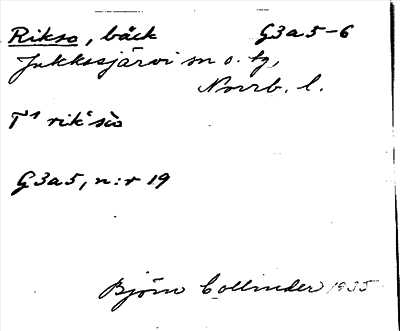 Rikso, bäck G3a5-6
Jukkasjärvi sn o. tg,
Norrb. l.
T¹ rik'sò
G3a5, n:r 19
Björn Collinder 1935